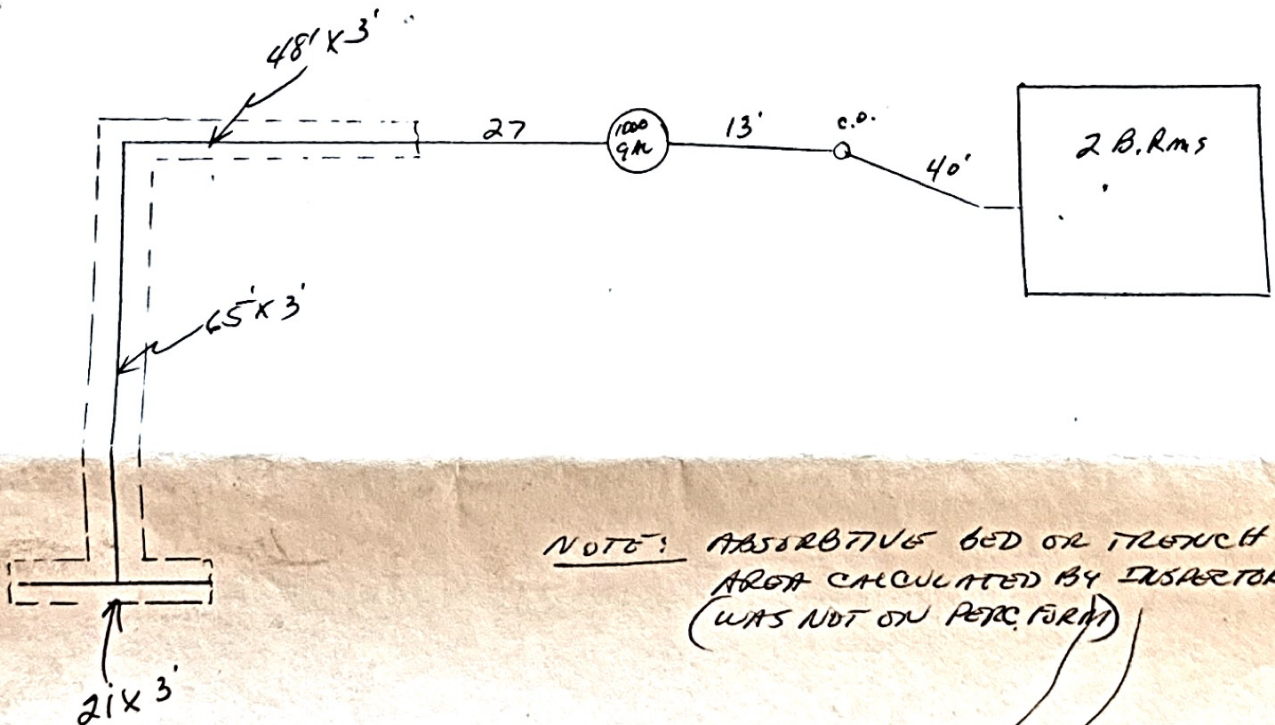 48' X 3'
27
1000
GAL
13'
C.O.
40'
2 B.Rms
65' X 3'
NOTE: ABSORBTIVE BED OR TRENCH
AREA CALCULATED BY INSPECTOR
(WAS NOT ON PERC. FORM)
21 X 3'